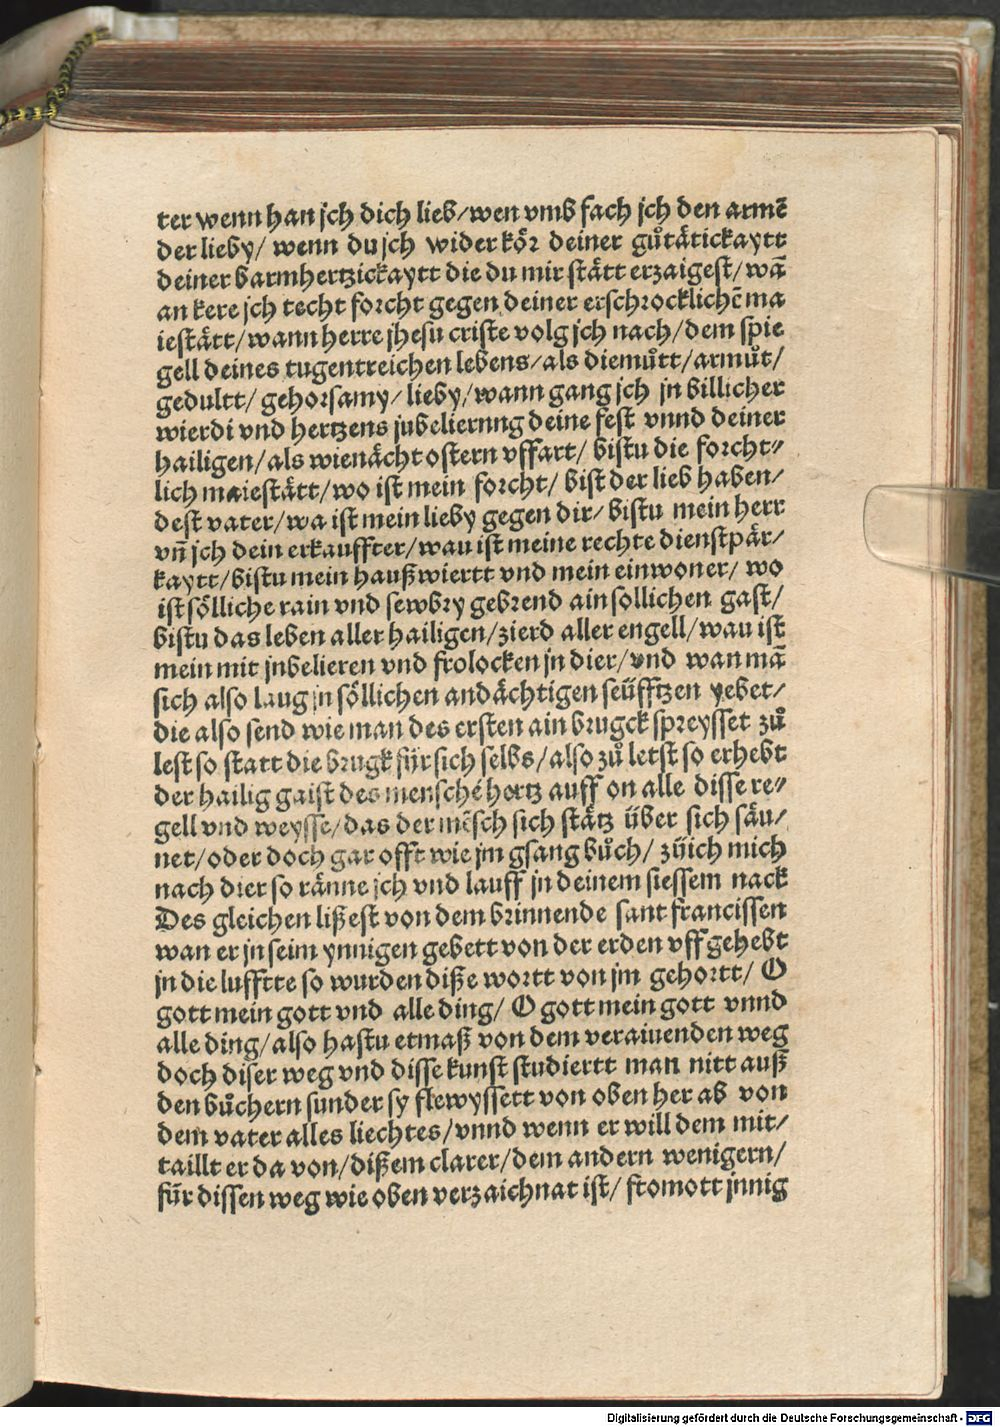 ter wenn han jch dich lieb/wen vmb sach jch den armē
der lieby/ wenn du jch wider kör deiner gůtätickaytt
deiner barmhertzickaytt die du mir stätt erzaigest/ wā
an kere jch recht forcht gegen deiner erschrocklichē ma
iestätt/wann herre jhesu criste volg jch nach/dem spie
gell deines tugentreichen lebens/als diemůtt/armůt/
gedultt/ gehorsamy/ lieby/wann gang jch jn billicher
wierdi vnd hertzens jubelierung deine fest vnnd deiner
hailigen/als wienächt ostern vffart/ bistu die forcht⸗
lich maiestätt/wo ist mein forcht/ bist der lieb haben/
dest vater/wa ist mein lieby gegen dir/ bistu mein herr
vn̄ jch dein erkauffter/wau ist meine rechte dienstpär/
kaytt/bistu mein haußwiertt vnd mein einwoner/ wo
ist sölliche rain vnd sewbry gebrend ain sollichen gast/
bistu das leben aller hailigen/zierd aller engell/wau ist
mein mit jubelieren vnd frolocken jn dier/vnd wan mā
sich also laug jn söllichen andächtigen seüfftzen yebet/
die also send wie man des ersten ain brugck spreysset zů
lest so statt die brugk für sich selbs/also zů letst so erhebt
der hailig gaist des menschē hertz auff on alle disse re⸗
gell vnd weysse/das der mēsch sich stätz über sich säu/
net/oder doch gar offt wie jm gsang bůch/ züich mich
nach dier so ränne jch vnd lauff jn deinem siessem nack
Des gleichen lißest von dem brinnende sant francissen
wan er jn seim ynnigen gebett von der erden vff gehebt
jn die lufftte so wurden diße wortt von jm gehortt/ O
gott mein gott vnd alle ding/ O gott mein gott vnnd
alle ding/also hastu etmaß von dem veraiuenden weg
doch diser weg vnd disse kunst studiertt man nitt auß
den bůchern sunder sy flewyssett von oben her ab von
dem vater alles liechtes/vnnd wenn er will dem mit/
taillt er da von/dißem clarer/dem andern wenigern/
für dissen weg wie oben verzaichnat ist/ ftomott jnnig
Digitalisierung gefördert durch die Deutsche Forschungsgemeinschaft - DFG